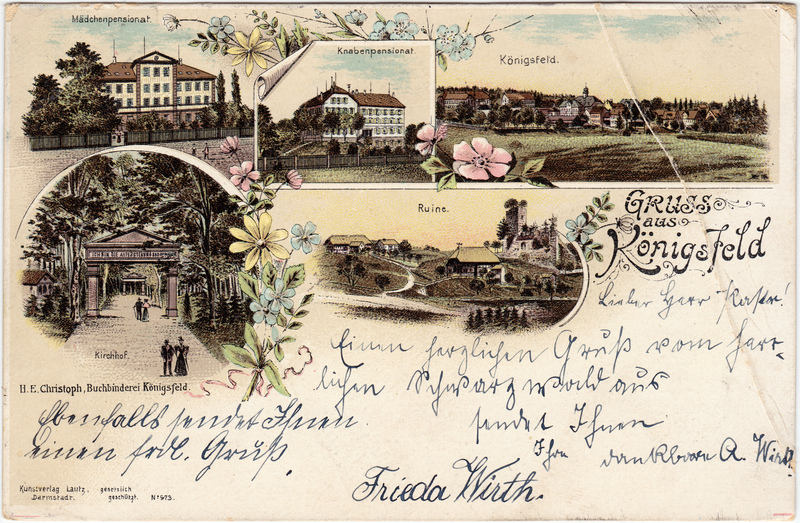 Mädchenpensionat.
Knabenpensionat.
Königsfeld.
Ruine.
GRUSS
aus
Königsfeld
Kirchhof.
H. E. Christoph, Buchbinderei Königsfeld.
Lieber Herr
Einen herzlichen Gruß vom herr-
lichen Schwarzwald aus
sendet Ihnen
Ihre dankbare A. Wirth
Ebenfalls sendet Ihnen
einen frdl. Gruß
Frieda Wirth.
Kunstverlag Lautz, gesetzlich
Darmstadt. geschützt. No 973.